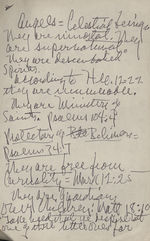 Angels = Celestial beings
They are immortal. They
are supernatural
They are described
Spirits.
According to Heb. 12:22
they are innumerable.
They are Ministers of
Saints. Psalms 104:4
Protectors of Believers =
Psalms 34:7
They are free from
Mark 12:25
They are Guardians
Over Children. Matt 18:10
Take heed that ye despise not
one of these little ones for